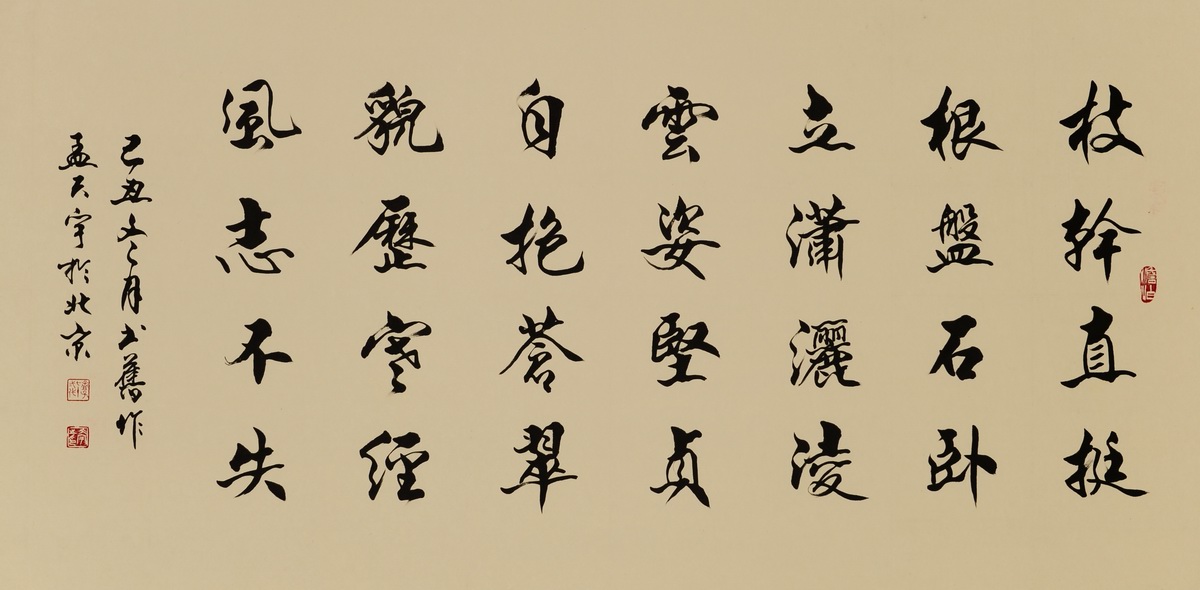 枝幹直挺
根盤石卧
立瀟灑淩
雲姿堅貞
自抱蒼翠
貌歷寒經
風志不失
己丑冬月书舊作
孟天宇於北京